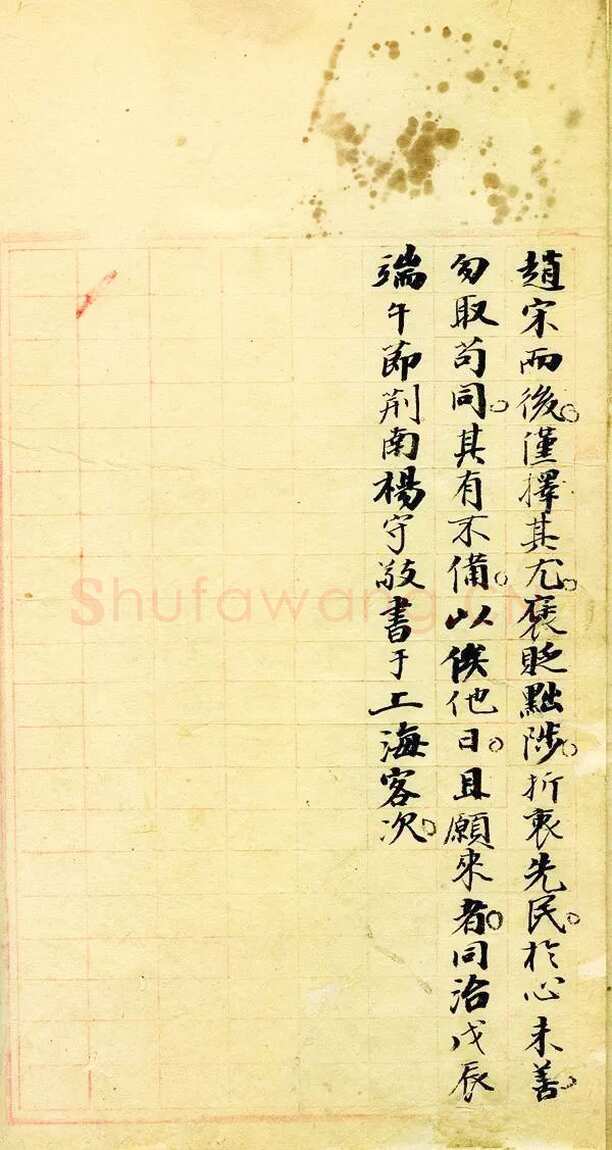 趙宋而後。僅擇其尤。襃貶黜陟。折衷先民。於心未善。
勿取苟同。其有不備。以俟他日。且願來者。同治戊辰
端午節荆南楊守敬書于上海客次。
Shufawang